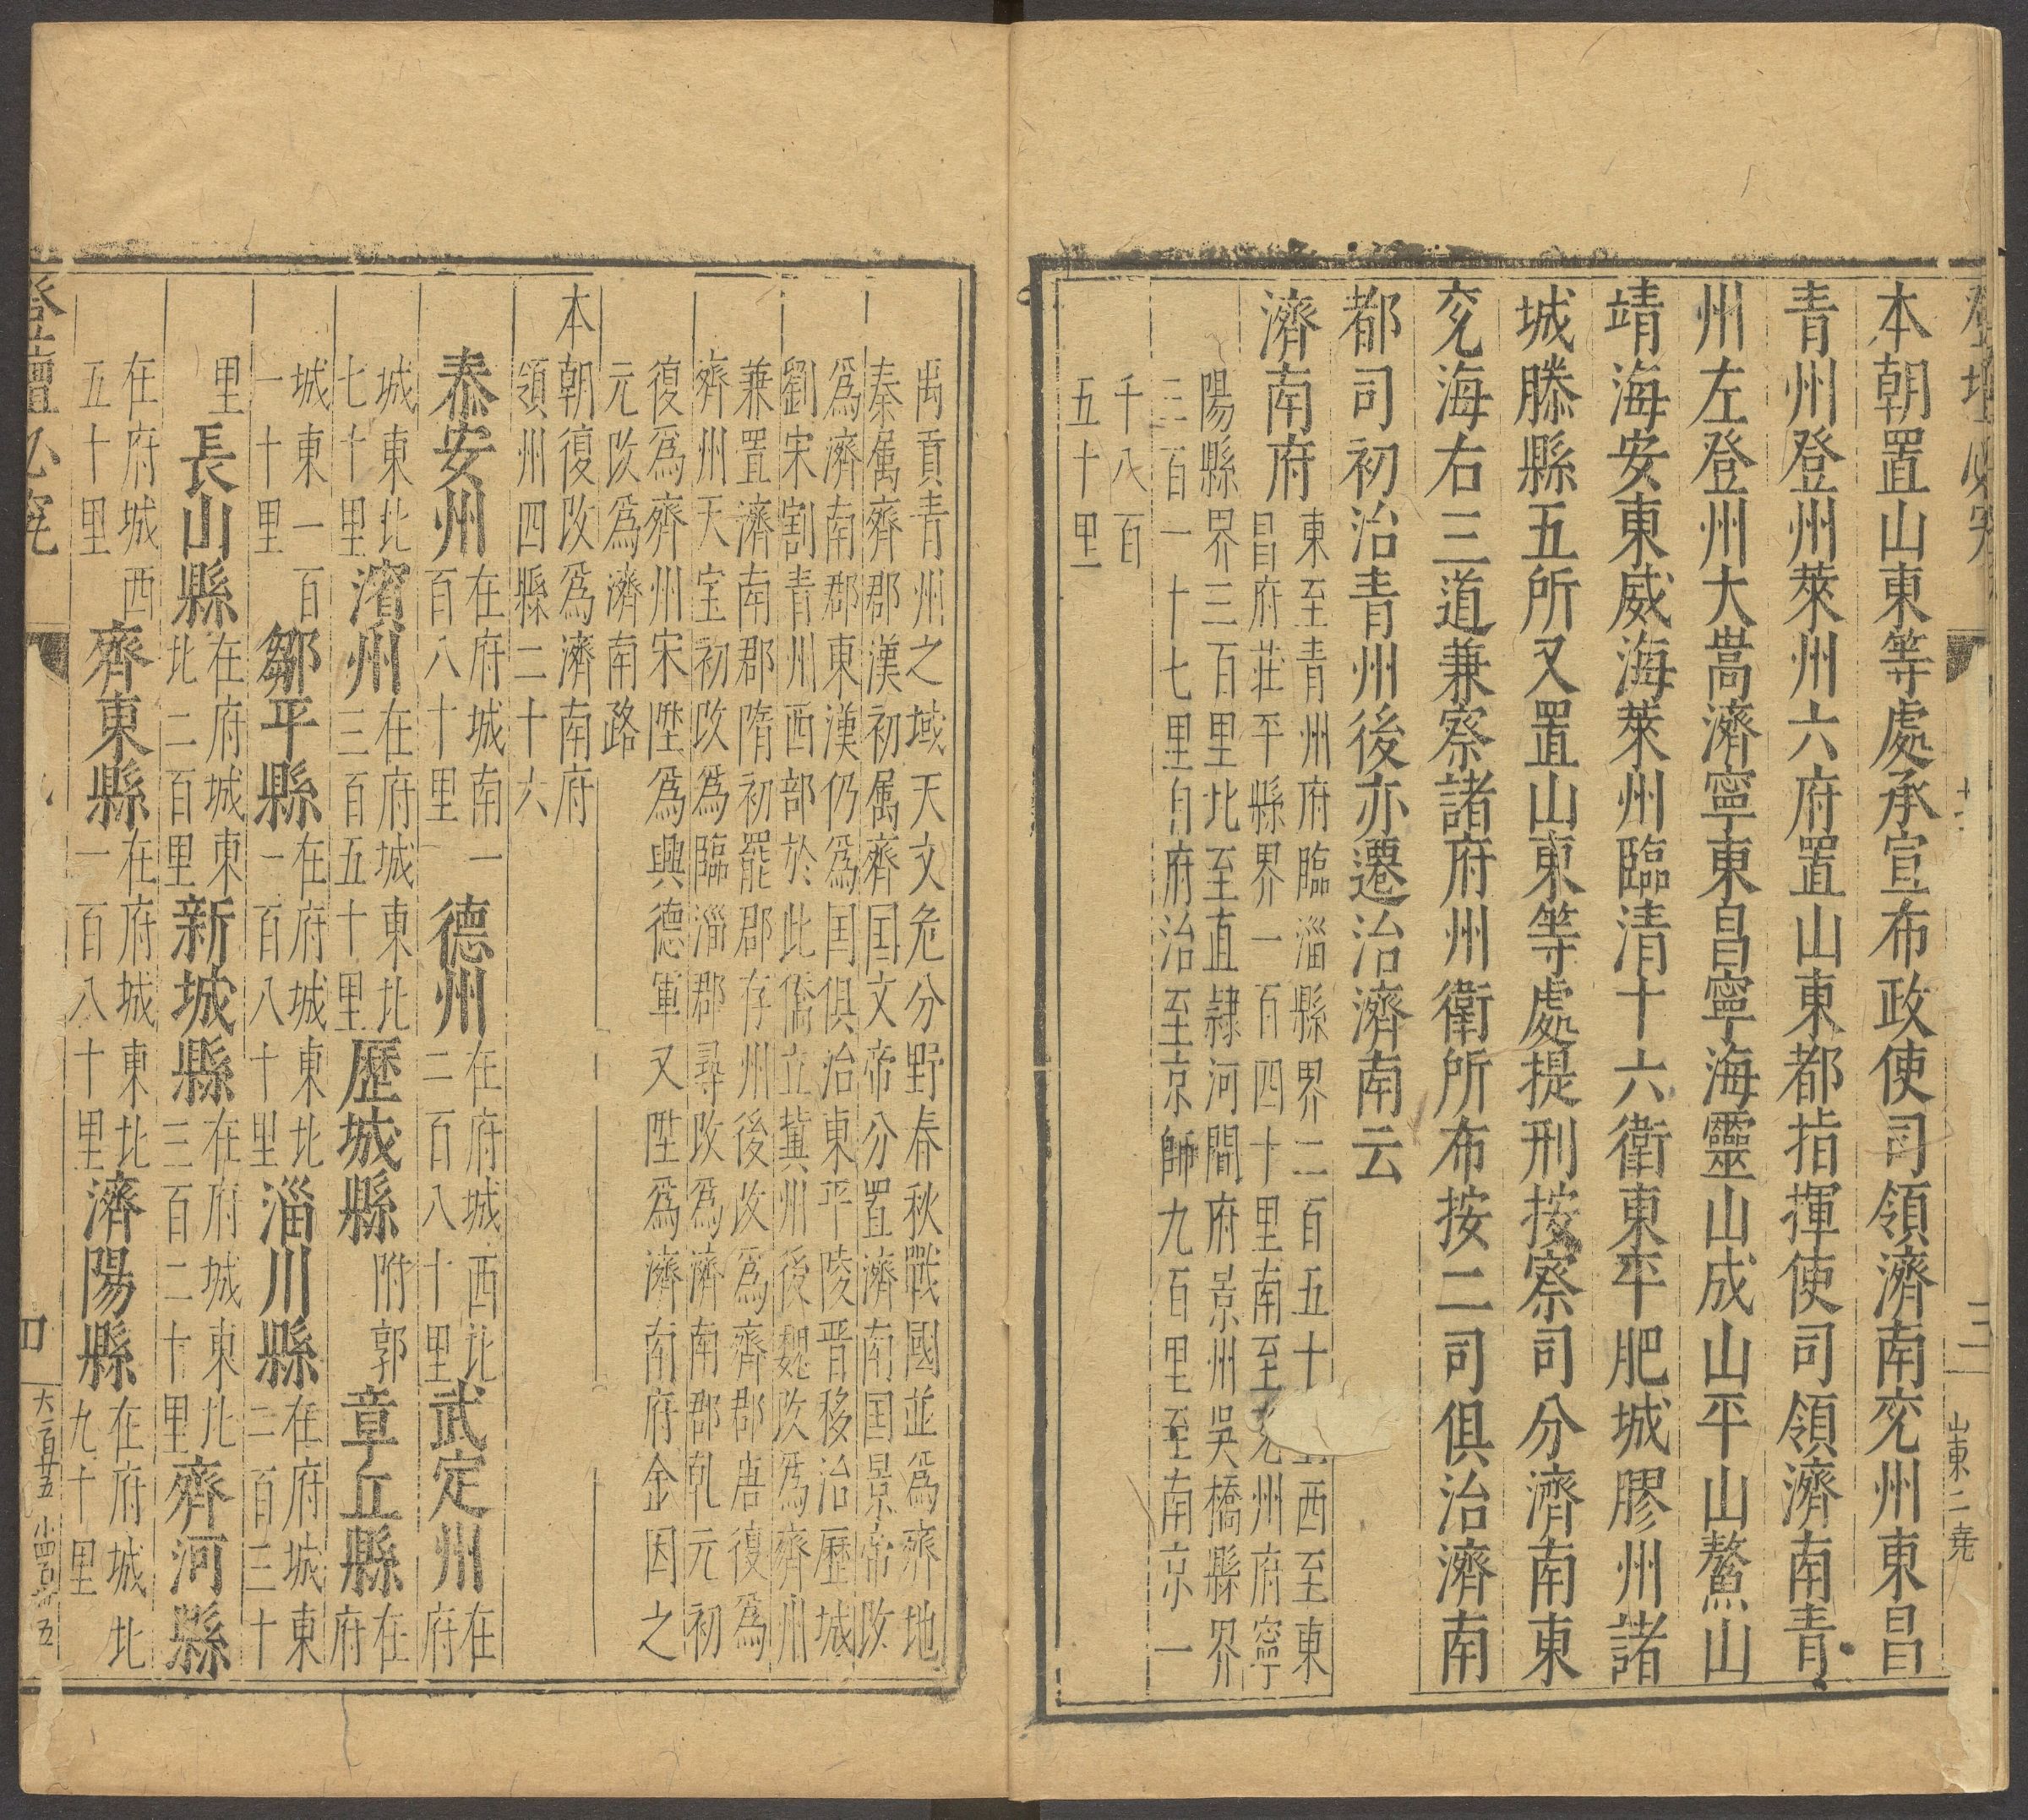 登壇必究
三
山東二 堯
本朝置山東等處承宣布政使司領濟南兖州東昌
青州登州萊州六府置山東都指揮使司領濟南青
州左登州大嵩濟寧東昌寧海靈山成山平山鰲山
靖海安東威海萊州臨清十六衛東平肥城膠州諸
城滕縣五所又置山東等處提刑按察司分濟南東
兖海右三道兼察諸府州衛所布按二司俱治濟南
都司初治青州後亦遷治濟南云
濟南府
東至青州府臨淄縣界二百五十 西至東
昌府茌平縣界一百四十里南至兖州府寧
陽縣界三百里北至直隸河間府景州吳橋縣界
三百一十七里自府治至京師九百里至南京一
千八百
五十里
禹貢青州之域天文危分野春秋戰國並爲齊地
秦属齊郡漢初属齊国文帝分置濟南国景帝改
爲濟南郡東漢仍爲国俱治東平陵晋移治歷城
劉宋割青州西部於此僑立冀州後魏改爲齊州
兼置濟南郡隋初罷郡存州後改爲齊郡唐復爲
齊州天宝初改爲臨淄郡尋改爲濟南郡乹元初
復爲齊州宋陞爲興德軍又陞爲濟南府金因之
元改爲濟南路
本朝復改爲濟南府
領州四縣二十六
泰安州在府城南一百八十里 德州在府城西北二百八十里武定州在府
城東北七十里濱州在府城東北三百五十里歷城縣附郭章丘縣在府
城東一百一十里鄒平縣在府城東北一百八十里淄川縣在府城東二百三十
里長山縣在府城東北二百里新城縣在府城東北三百二十里齊河縣
在府城西五十里齊東縣在府城東北一百八十里濟陽縣在府城北九十里
登壇必究
四
大二百廿五